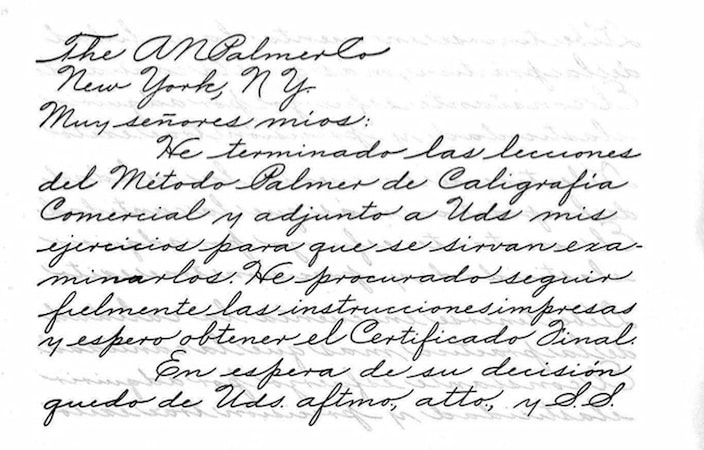 The A N Palmer Co
New York, N Y.
Muy señores mios:
He terminado las lecciones
del Método Palmer de Caligrafía
Comercial y adjunto a Uds mis
ejercicios para que se sirvan exa-
minarlos. He procurado seguir
fielmente las instrucciones impresas
y espero obtener el Certificado Final.
En espera de su decisión
quedo de Uds. aftmo, atto., y S.S.